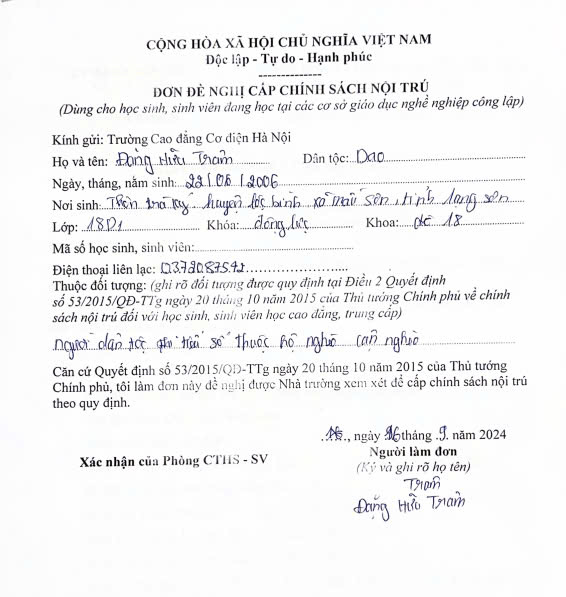 CỘNG HÒA XÃ HỘI CHỦ NGHĨA VIỆT NAM
Độc lập - Tự do - Hạnh phúc
--------------
ĐƠN ĐỀ NGHỊ CẤP CHÍNH SÁCH NỘI TRÚ
(Dùng cho học sinh, sinh viên đang học tại các cơ sở giáo dục nghề nghiệp công lập)
Kính gửi: Trường Cao đẳng Cơ điện Hà Nội
Họ và tên: Đặng Hữu Tram Dân tộc: Dao
Ngày, tháng, năm sinh: 22/08/2006
Nơi sinh: huyện lộc bình xã mẫu sơn, tỉnh lạng sơn
Lớp: 18D1 Khóa: động lực Khoa: 18
Mã số học sinh, sinh viên:
Điện thoại liên lạc:
Thuộc đối tượng: (ghi rõ đối tượng được quy định tại Điều 2 Quyết định
số 53/2015/QĐ-TTg ngày 20 tháng 10 năm 2015 của Thủ tướng Chính phủ về chính
sách nội trú đối với học sinh, sinh viên học cao đẳng, trung cấp)
người dân tộc thiểu số thuộc hộ nghèo cận nghèo
Căn cứ Quyết định số 53/2015/QĐ-TTg ngày 20 tháng 10 năm 2015 của Thủ tướng
Chính phủ, tôi làm đơn này đề nghị được Nhà trường xem xét để cấp chính sách nội trú
theo quy định.
ngày 26 tháng 9 năm 2024
Xác nhận của Phòng CTHS - SV Người làm đơn
(Ký và ghi rõ họ tên)
Tram
Đặng Hữu Tram